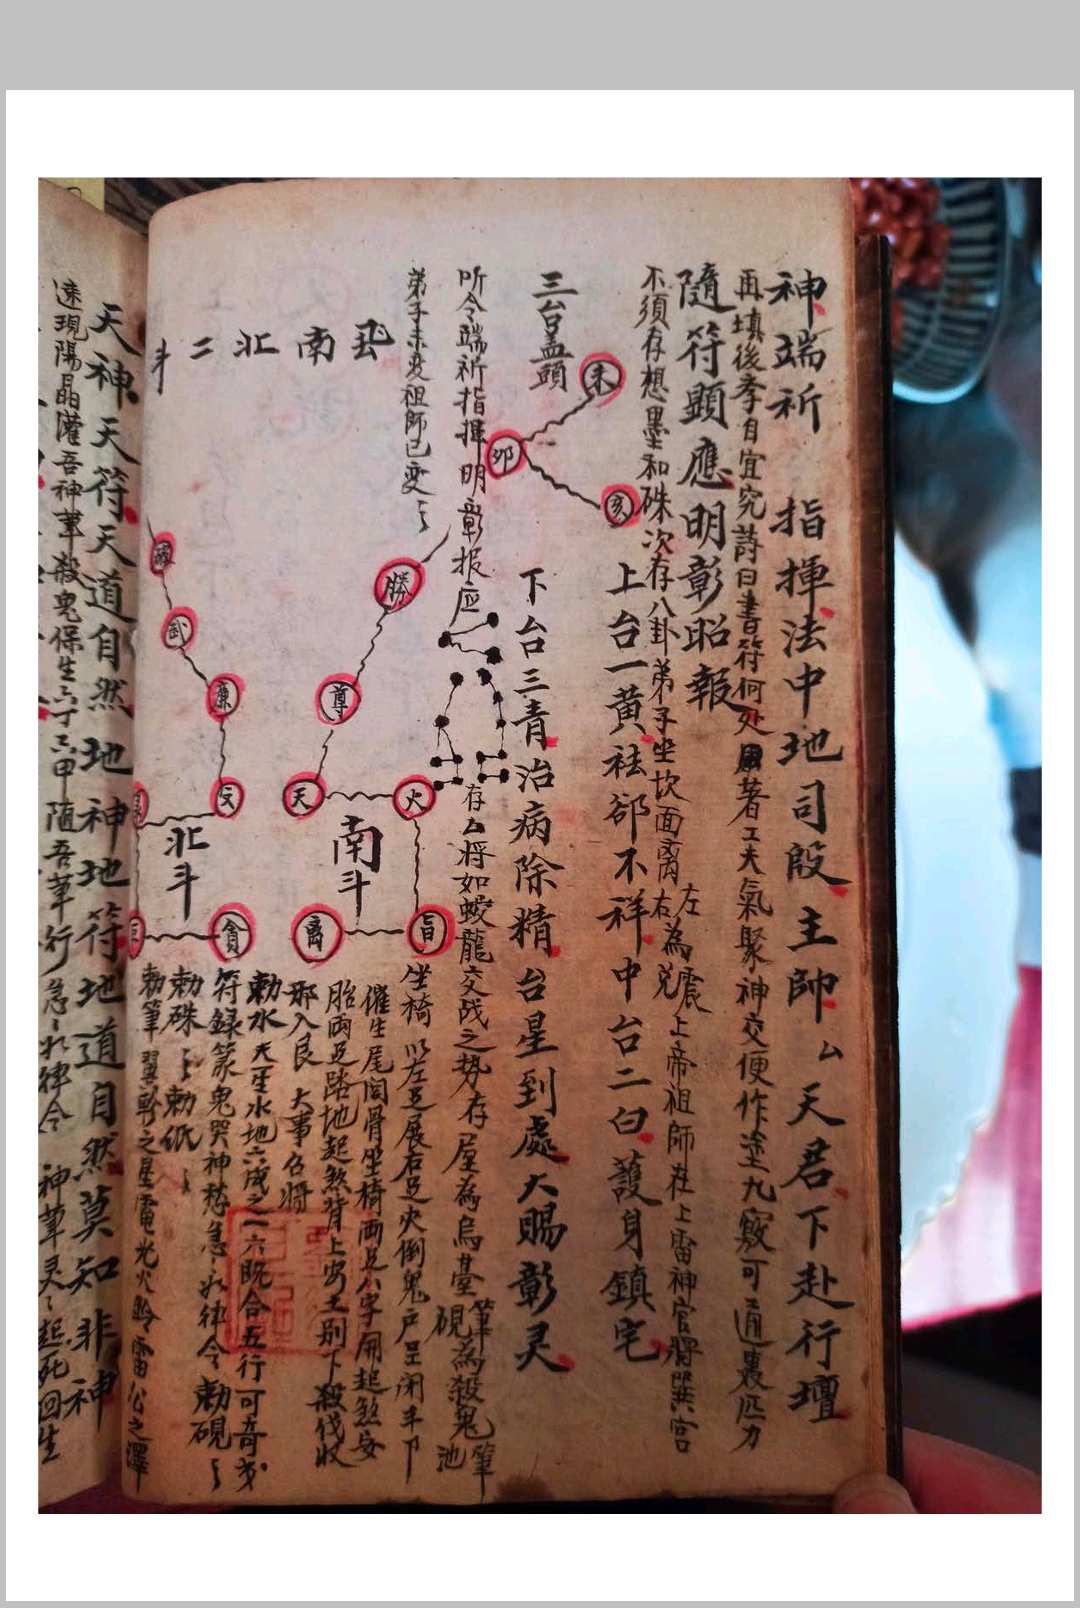 神端祈　指揮法中地司殷主帥ム天君下赴行壇
再填後李自宜究詩曰書符何处用著工夫氣聚神交便作塗九竅可通裏匹力
隨符顕應明彰昭報
不須存想墨和硃次存八卦弟子坐坎面离左為震右兑上帝祖師在上雷神官將巽宫
三台盖頭
未
卯
亥
上台一黄祛邪不祥中台二白護身鎮宅
下台三青治病除精台星到處大賜彰灵
听令端祈指揮明彰报应
存ム將如蛟龍交战之勢存屋為烏墓筆為殺鬼筆硯池
弟子未变祖師已变
坐椅以左足展右足火倒鬼户
南北二斗
勝
尊
天
火
南斗
离
旨
催生尾閭骨坐椅两足八字開起煞安
胎两足踏地起煞背上安土别下殺伐收
邪入艮　大事召將
武
廉
文
北斗
貪
勅水天一生水地六成之一六既合五行可奇
符録篆鬼哭神愁急ミ如律令勅硯ミ
勅硃ミミ勅纸ミ
勅筆翼軫之星電光火鈴雷公之澤
天神天符天道自然地神地符地道自然莫知非神
速現陽晶灌吾神筆殺鬼保生六丁六甲随吾筆行急ミ如律令　神筆灵ミ起死回生